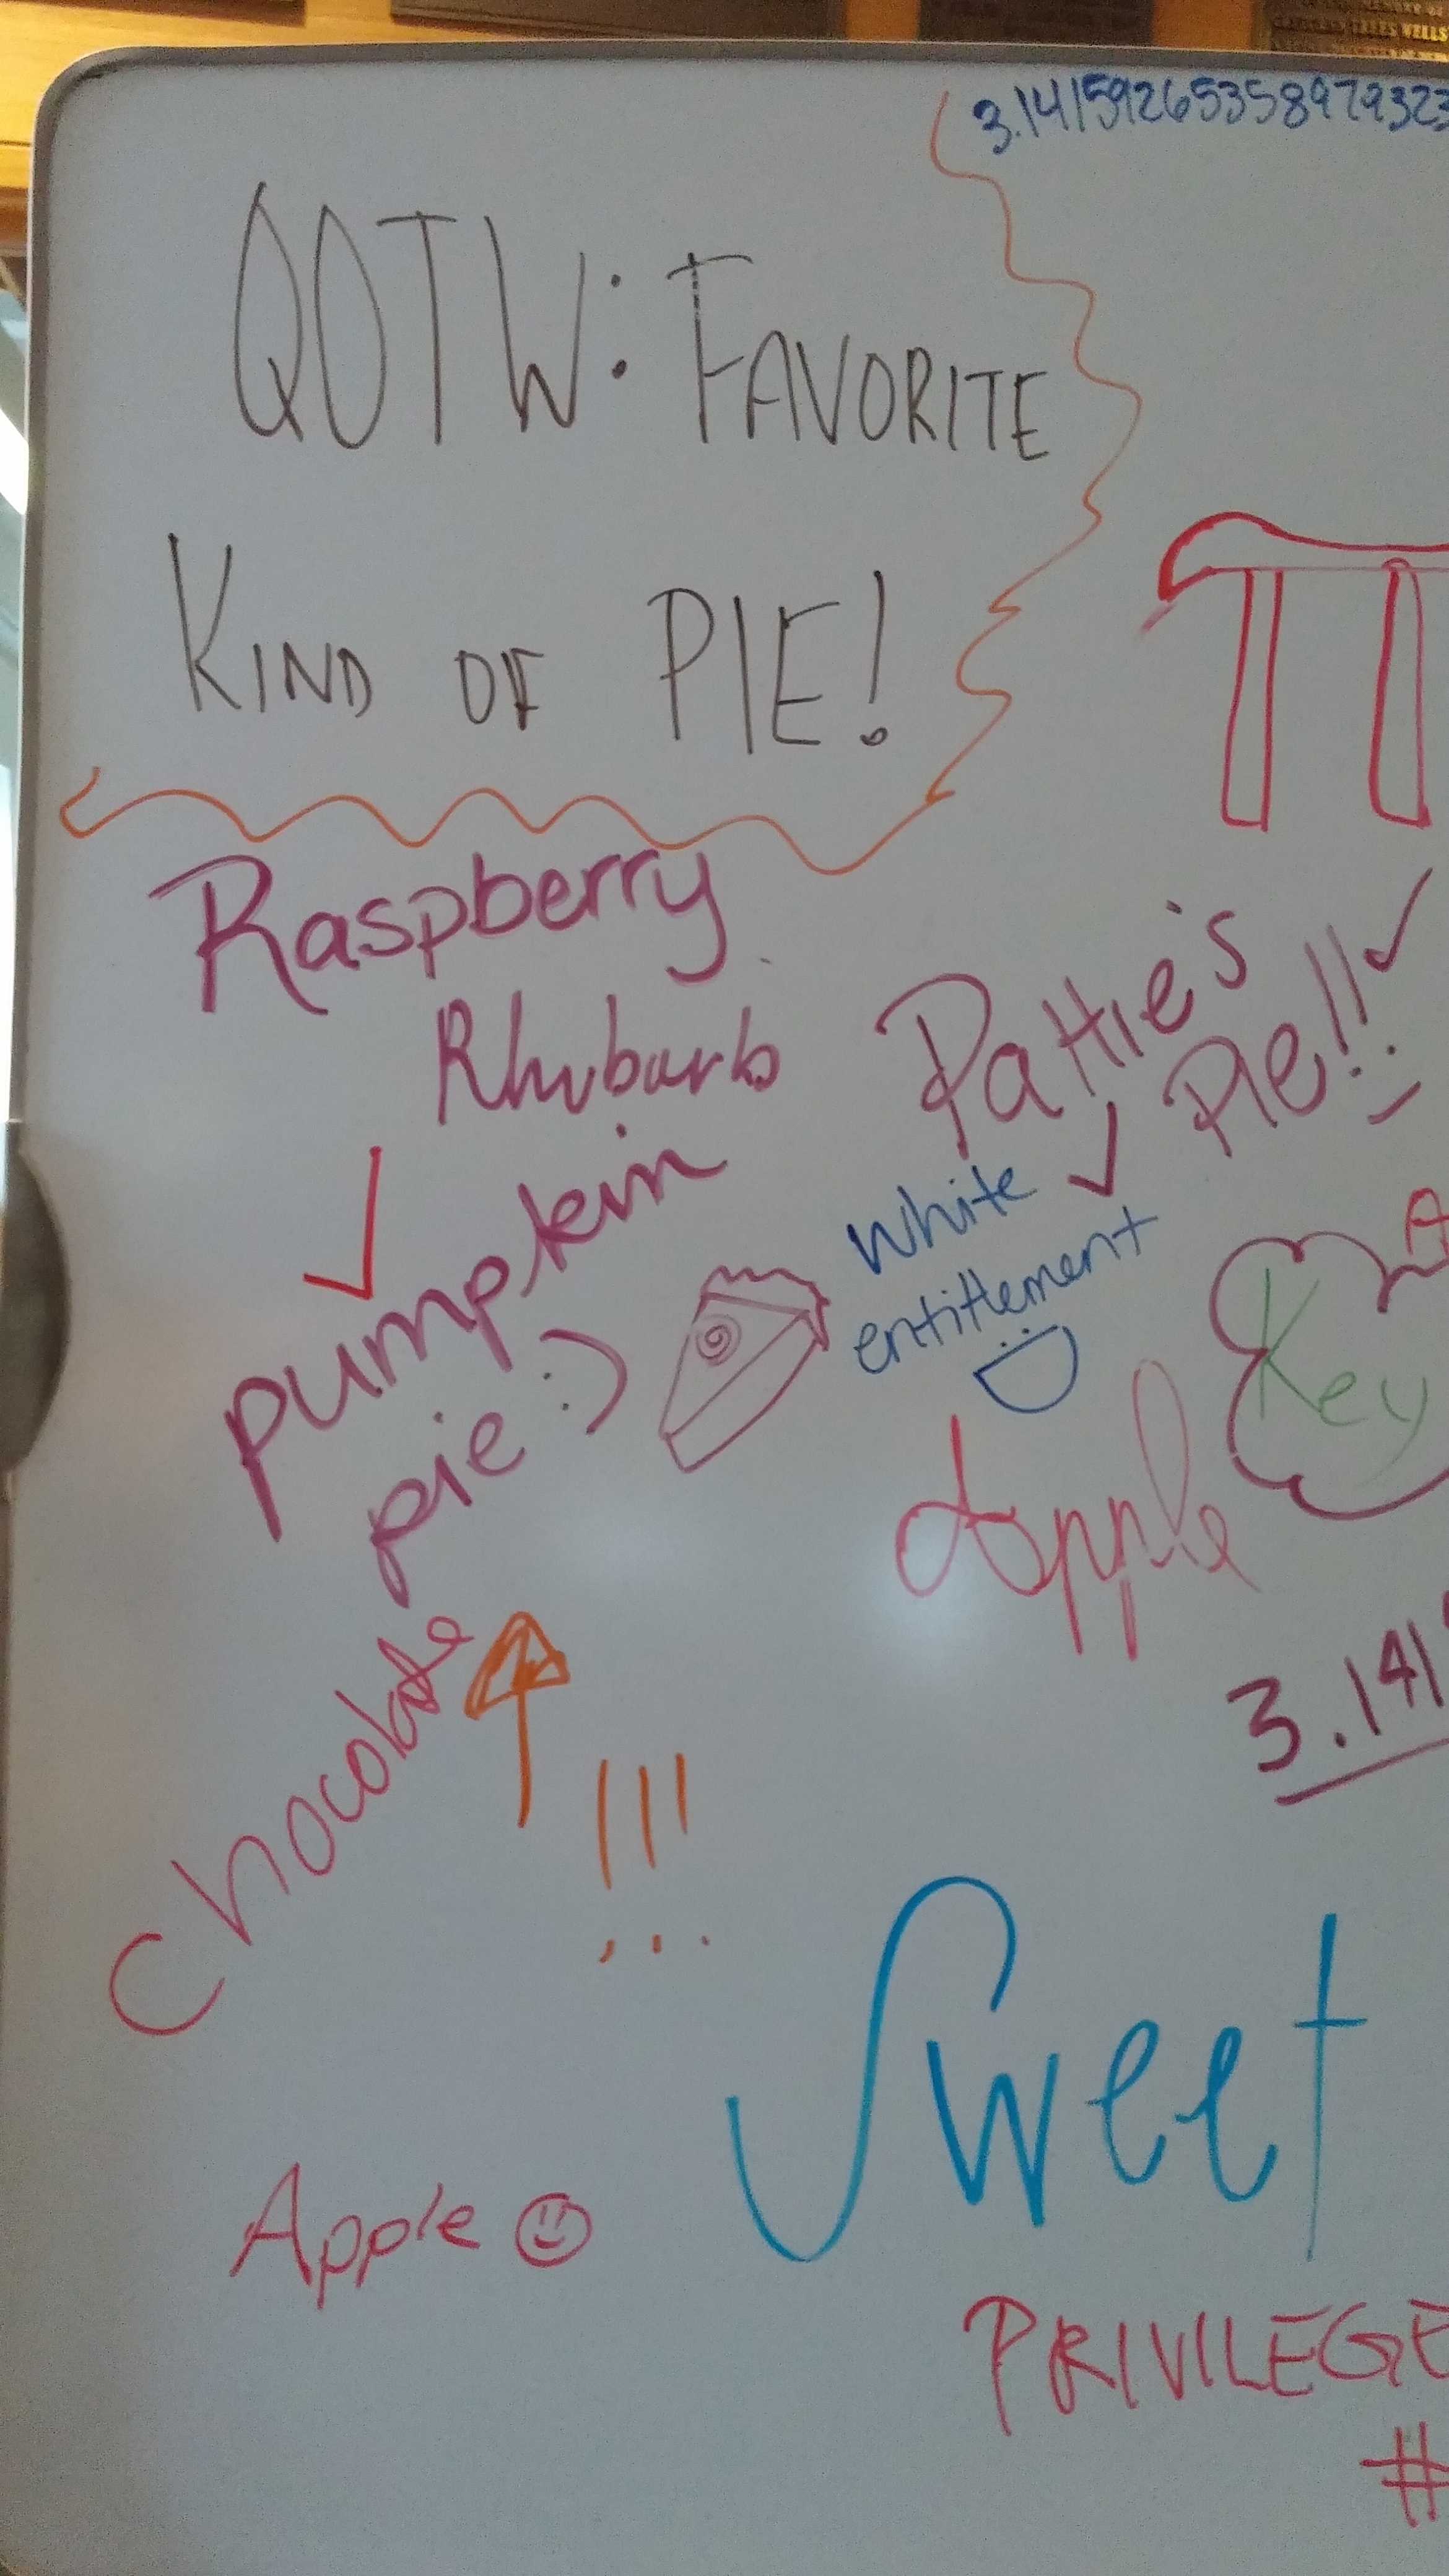 3.14159265358979323
QOTW: FAVORITE
KIND OF PIE!
π
Raspberry
Rhubarb
Pattie's
Pie!! :)
pumpkin
pie :)
white
entitlement
A
Key
Apple
chocolate
!!!
3.141
Sweet
Apple
PRIVILEGE
#